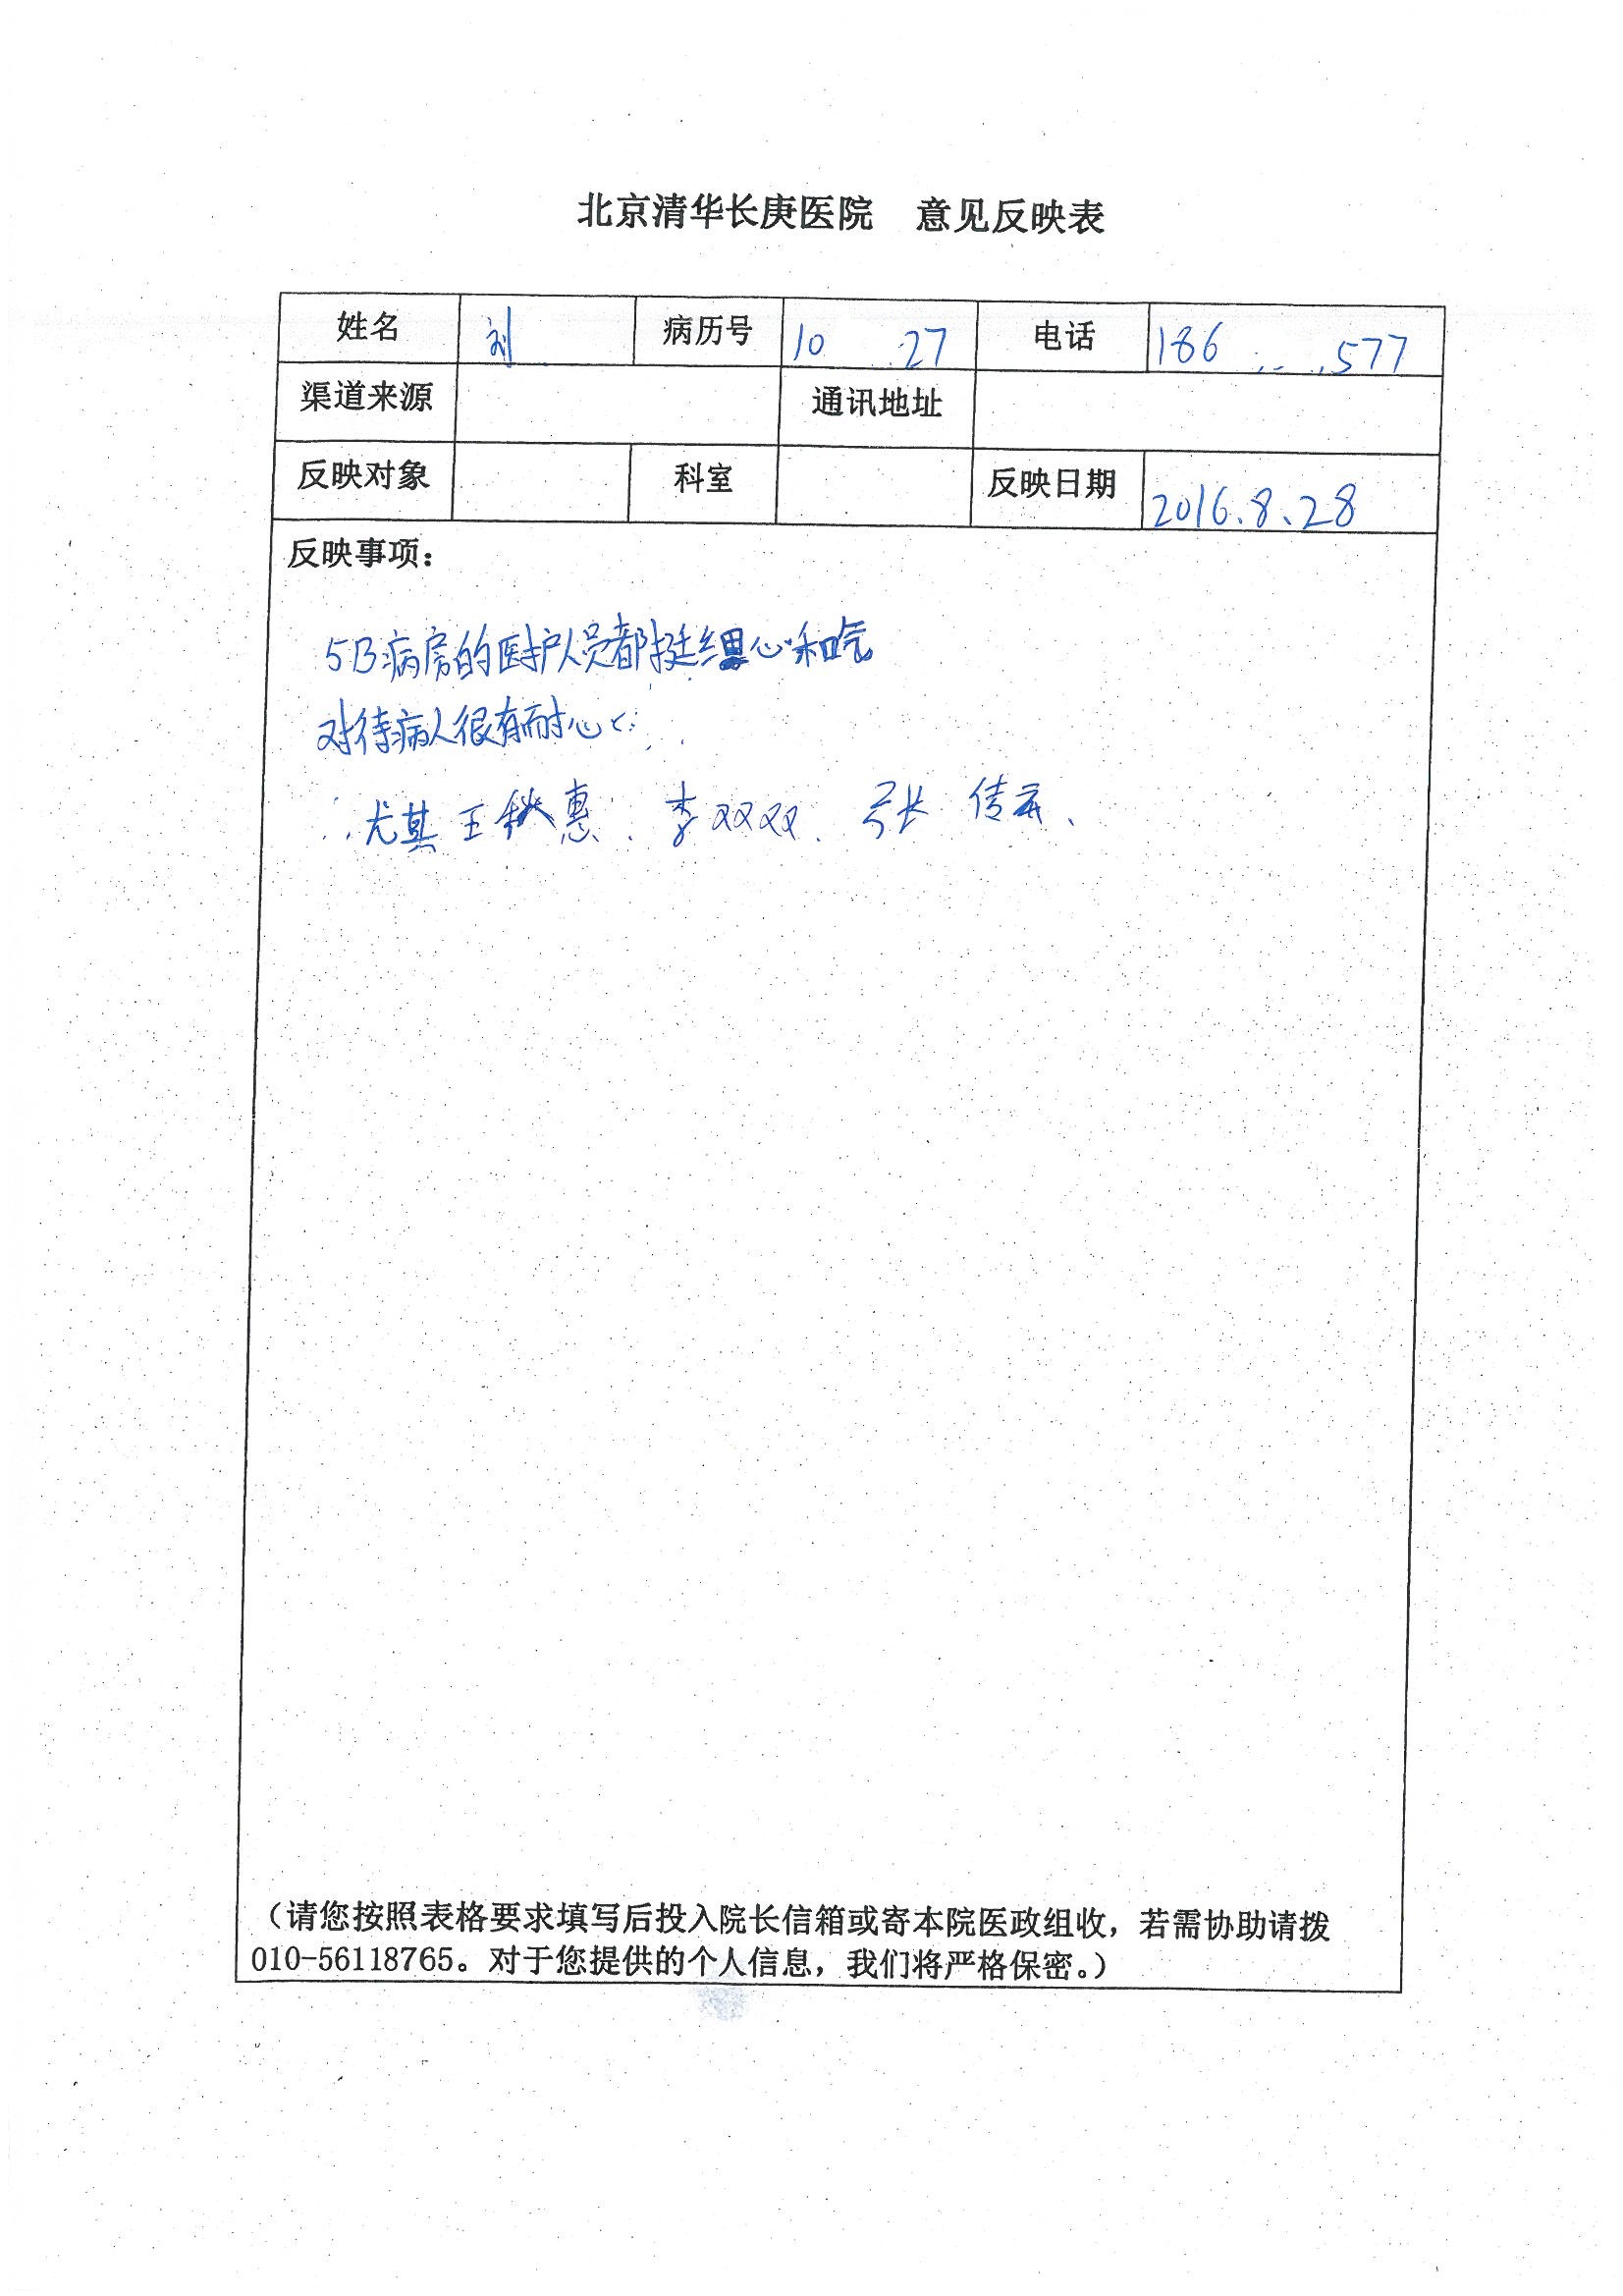 北京清华长庚医院 意见反映表
姓名 刘 病历号 10 27 电话 186 577
渠道来源 通讯地址
反映对象 科室 反映日期 2016.8.28
反映事项:
5B病房的医护人员都挺细心和气
对待病人很有耐心
尤其王秋惠、李双双、张传云、
(请您按照表格要求填写后投入院长信箱或寄本院医政组收,若需协助请拨
010-56118765。对于您提供的个人信息,我们将严格保密。)